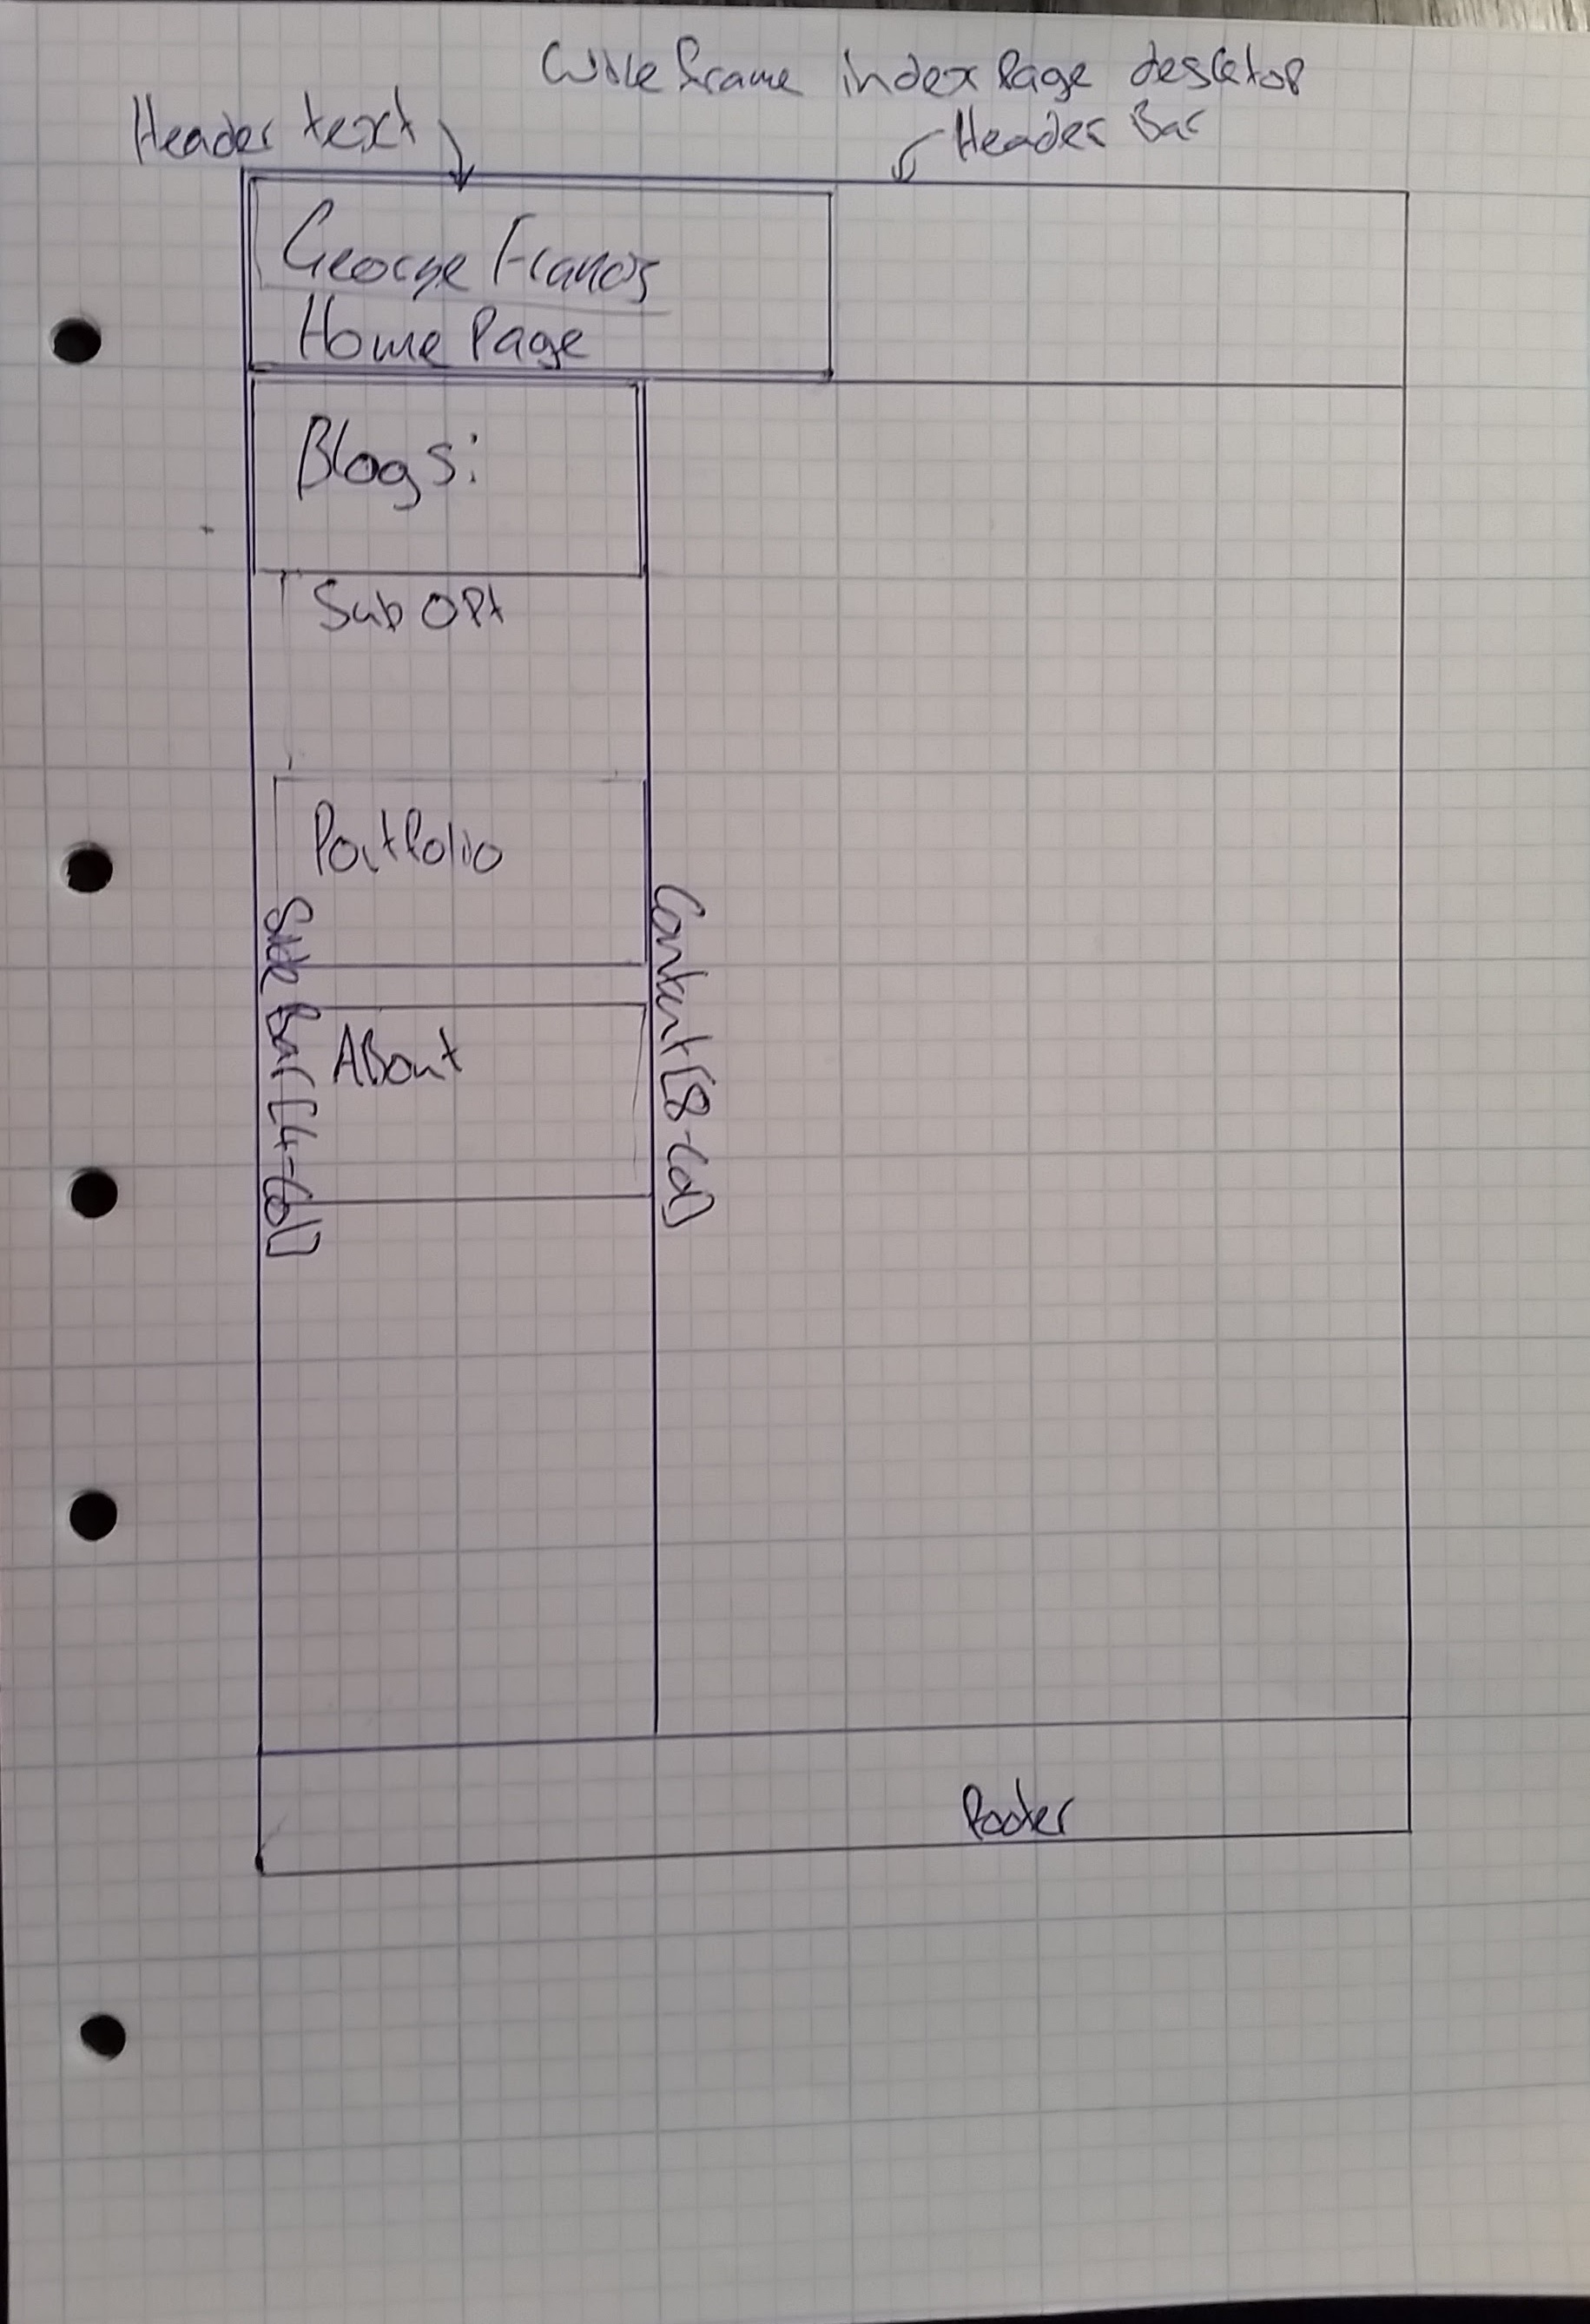 Wireframe index Page desktop
Header text
Header Bar
George Francis
Home Page
Blogs:
Sub OPt
Portfolio
Side Bar [4-Col]
Content [8-Col]
ABout
Footer